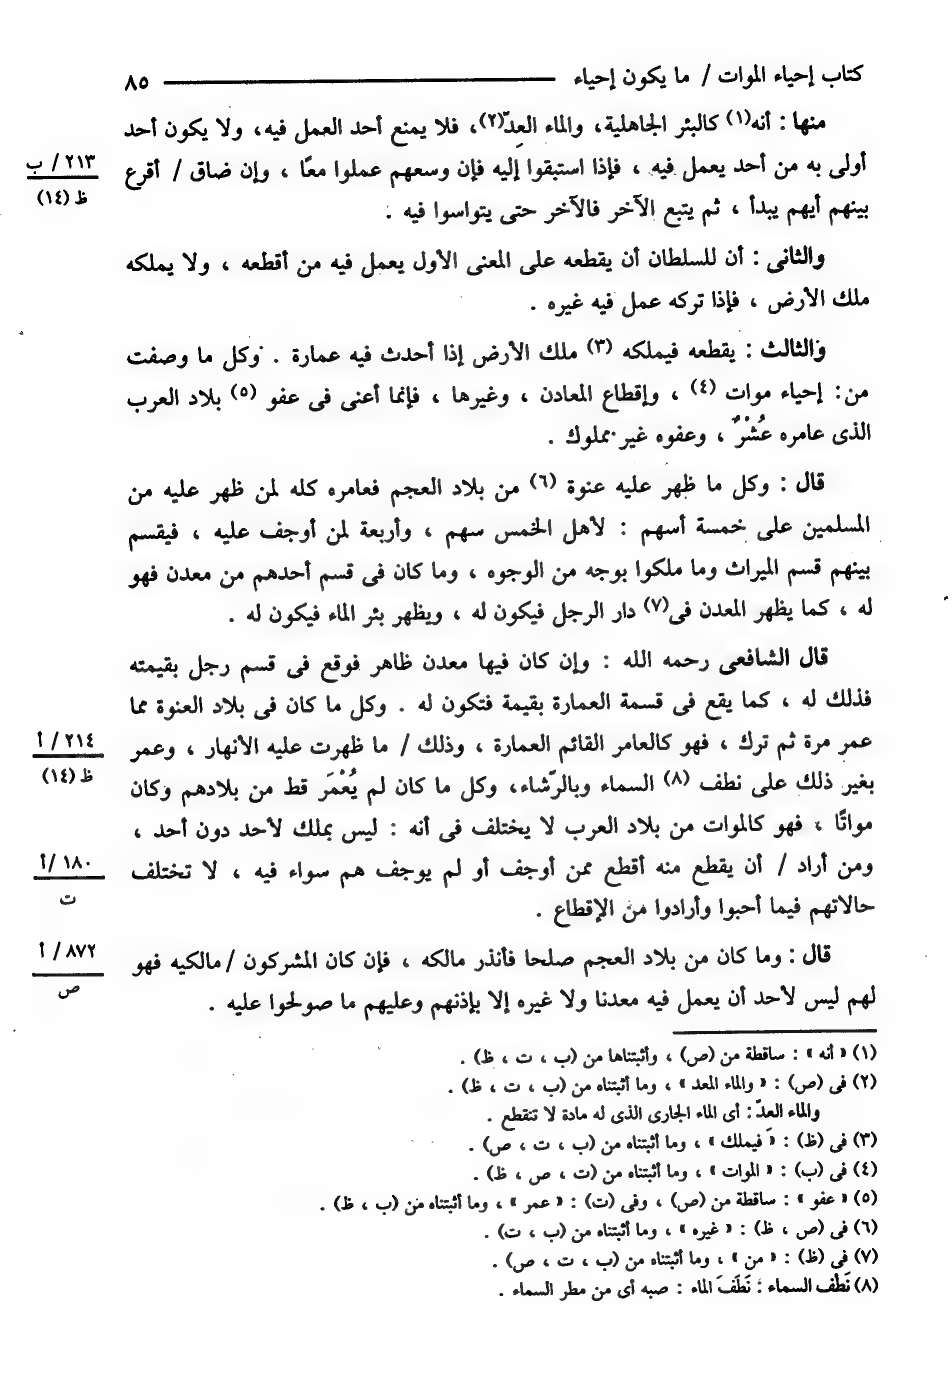 كتاب إحياء الموات / ما يكون إحياء ــــــــــ ٨٥
منها : أنه(١) كالبئر الجاهلية، والماء العِدّ(٢)، فلا يمنع أحد العمل فيه، ولا يكون أحد
أولى به من أحد يعمل فيه ، فإذا استبقوا إليه فإن وسعهم عملوا معًا ، وإن ضاق / أقرع
٢١٣/ ب
ظ (١٤)
بينهم أيهم يبدأ ، ثم يتبع الآخر فالآخر حتى يتواسوا فيه .
والثانى : أن للسلطان أن يقطعه على المعنى الأول يعمل فيه من أقطعه ، ولا يملكه
ملك الأرض ، فإذا تركه عمل فيه غيره .
والثالث : يقطعه فيملكه (٣) ملك الأرض إذا أحدث فيه عمارة . وكل ما وصفت
من: إحياء موات (٤) ، وإقطاع المعادن ، وغيرها ، فإنما أعنى فى عفو (٥) بلاد العرب
الذى عامره عُشْرٌ ، وعفوه غير مملوك .
قال : وكل ما ظهر عليه عنوة (٦) من بلاد العجم فعامره كله لمن ظهر عليه من
المسلمين على خمسة أسهم : لأهل الخمس سهم ، وأربعة لمن أوجف عليه ، فيقسم
بينهم قسم الميراث وما ملكوا بوجه من الوجوه ، وما كان فى قسم أحدهم من معدن فهو
له ، كما يظهر المعدن فى(٧) دار الرجل فيكون له ، ويظهر بئر الماء فيكون له .
قال الشافعى رحمه الله : وإن كان فيها معدن ظاهر فوقع فى قسم رجل بقيمته
فذلك له ، كما يقع فى قسمة العمارة بقيمة فتكون له . وكل ما كان فى بلاد العنوة مما
عمر مرة ثم ترك ، فهو كالعامر القائم العمارة ، وذلك / ما ظهرت عليه الأنهار ، وعمر
٢١٤ / أ
ظ (١٤)
بغير ذلك على نطف (٨) السماء وبالرِّشاء، وكل ما كان لم يُعْمَر قط من بلادهم وكان
مواتًا ، فهو كالموات من بلاد العرب لا يختلف فى أنه : ليس بملك لأحد دون أحد ،
ومن أراد / أن يقطع منه أقطع ممن أوجف أو لم يوجف هم سواء فيه ، لا تختلف
١٨٠ /أ
ت
حالاتهم فيما أحبوا وأرادوا من الإقطاع .
قال : وما كان من بلاد العجم صلحا فأنذر مالكه ، فإن كان المشركون /مالكيه فهو
٨٧٢ / أ
ص
لهم ليس لأحد أن يعمل فيه معدنا ولا غيره إلا بإذنهم وعليهم ما صولحوا عليه .
(١) « أنه » : ساقطة من (ص) ، وأثبتناها من (ب ، ت ، ظ) .
(٢) فى (ص) : « والماء المعد » ، وما أثبتناه من (ب ، ت ، ظ) .
والماء العدّ : أى الماء الجارى الذى له مادة لا تنقطع .
(٣) فى (ظ) : « فيملك » ، وما أثبتناه من (ب ، ت ، ص) .
(٤) فى (ب) : « الموات » ، وما أثبتناه من (ت ، ص ، ظ) .
(٥) « عفو » : ساقطة من (ص) ، وفى (ت) : « عمر » ، وما أثبتناه من (ب ، ظ) .
(٦) فى (ص ، ظ) : « غيره » ، وما أثبتناه من (ب ، ت) .
(٧) فى (ظ) : « من » ، وما أثبتناه من (ب ، ت ، ص) .
(٨) نَطْف السماء : نَطَفَ الماء : صبه أى من مطر السماء .